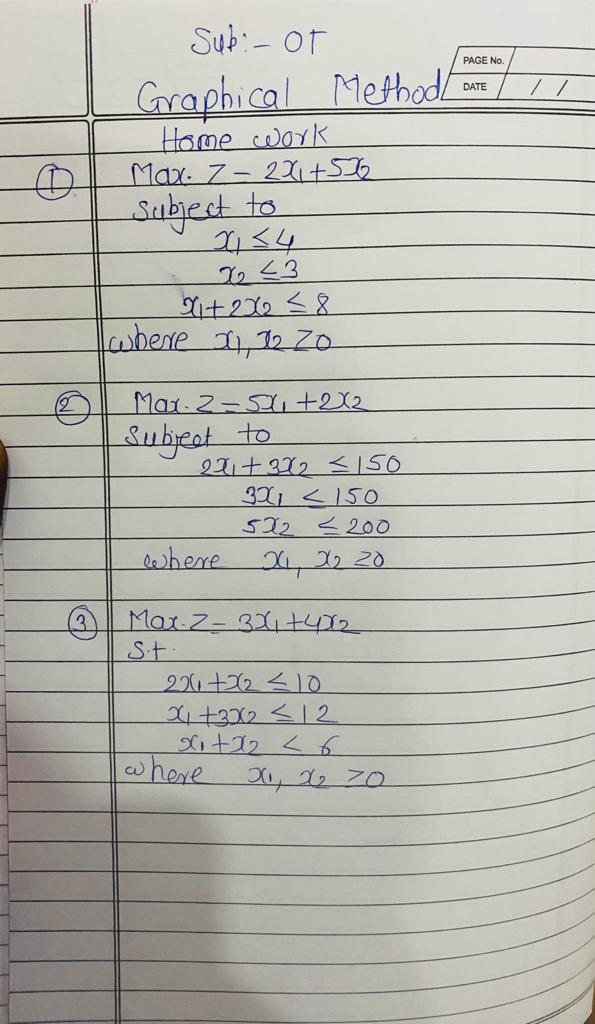 Sub:- OT
PAGE No.
DATE / /
Graphical Method
Home work
① Max. Z = 2x₁ + 5x₂
Subject to
x₁ ≤ 4
x₂ ≤ 3
x₁ + 2x₂ ≤ 8
where x₁, x₂ ≥ 0
② Max. Z = 5x₁ + 2x₂
Subject to
2x₁ + 3x₂ ≤ 150
3x₁ < 150
5x₂ ≤ 200
where x₁, x₂ ≥ 0
③ Max. Z = 3x₁ + 4x₂
S.t.
2x₁ + x₂ ≤ 10
x₁ + 3x₂ ≤ 12
x₁ + x₂ < 6
where x₁, x₂ ≥ 0